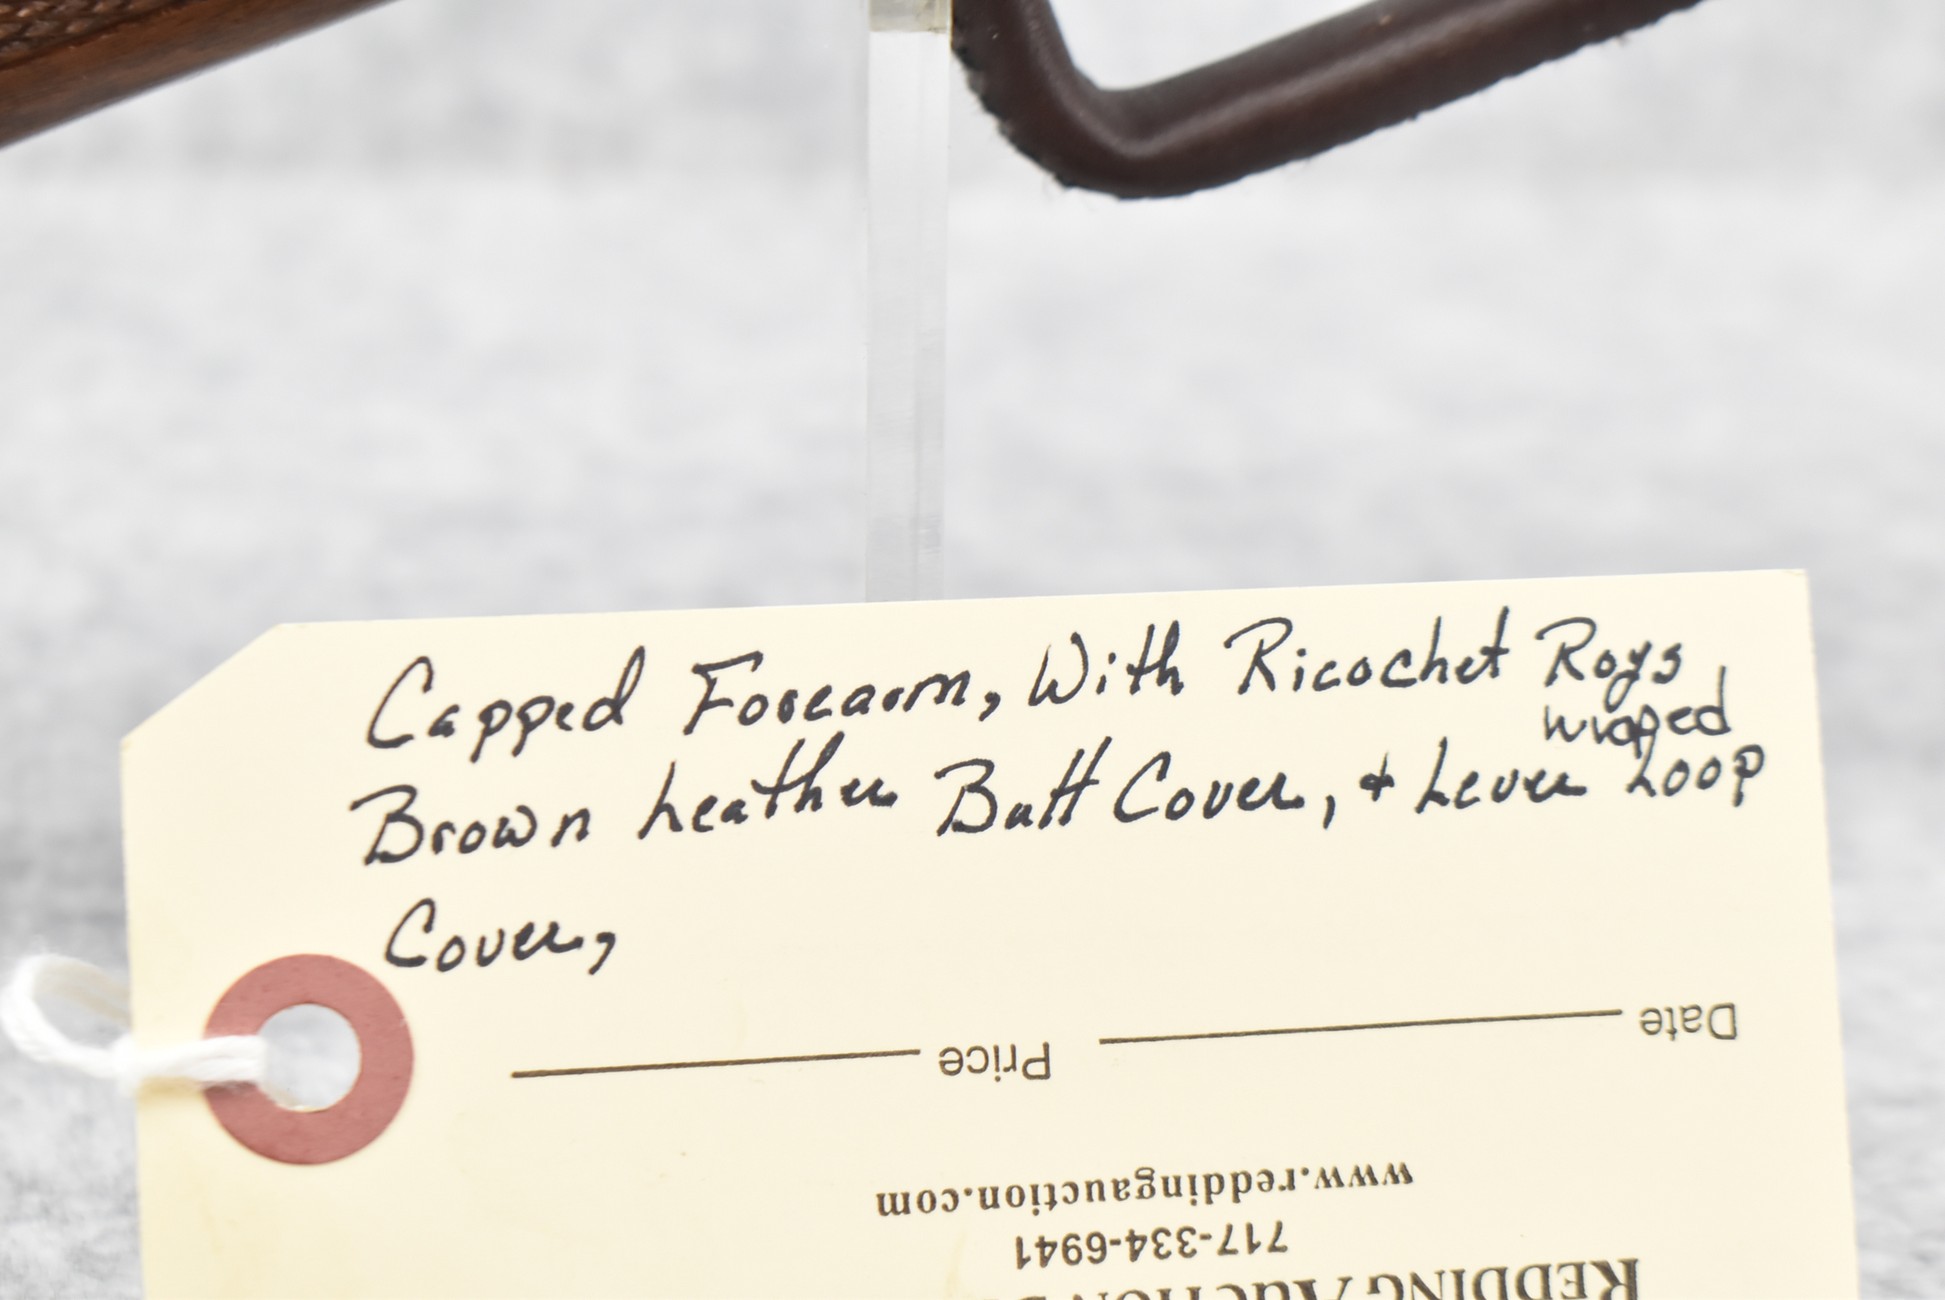 Capped Forearm, With Ricochet Roys
wraped
Brown Leather Butt Cover, + Lever Loop
Cover,
Date
Price
www.reddingauction.com
717-334-6941
REDDING AUCTION